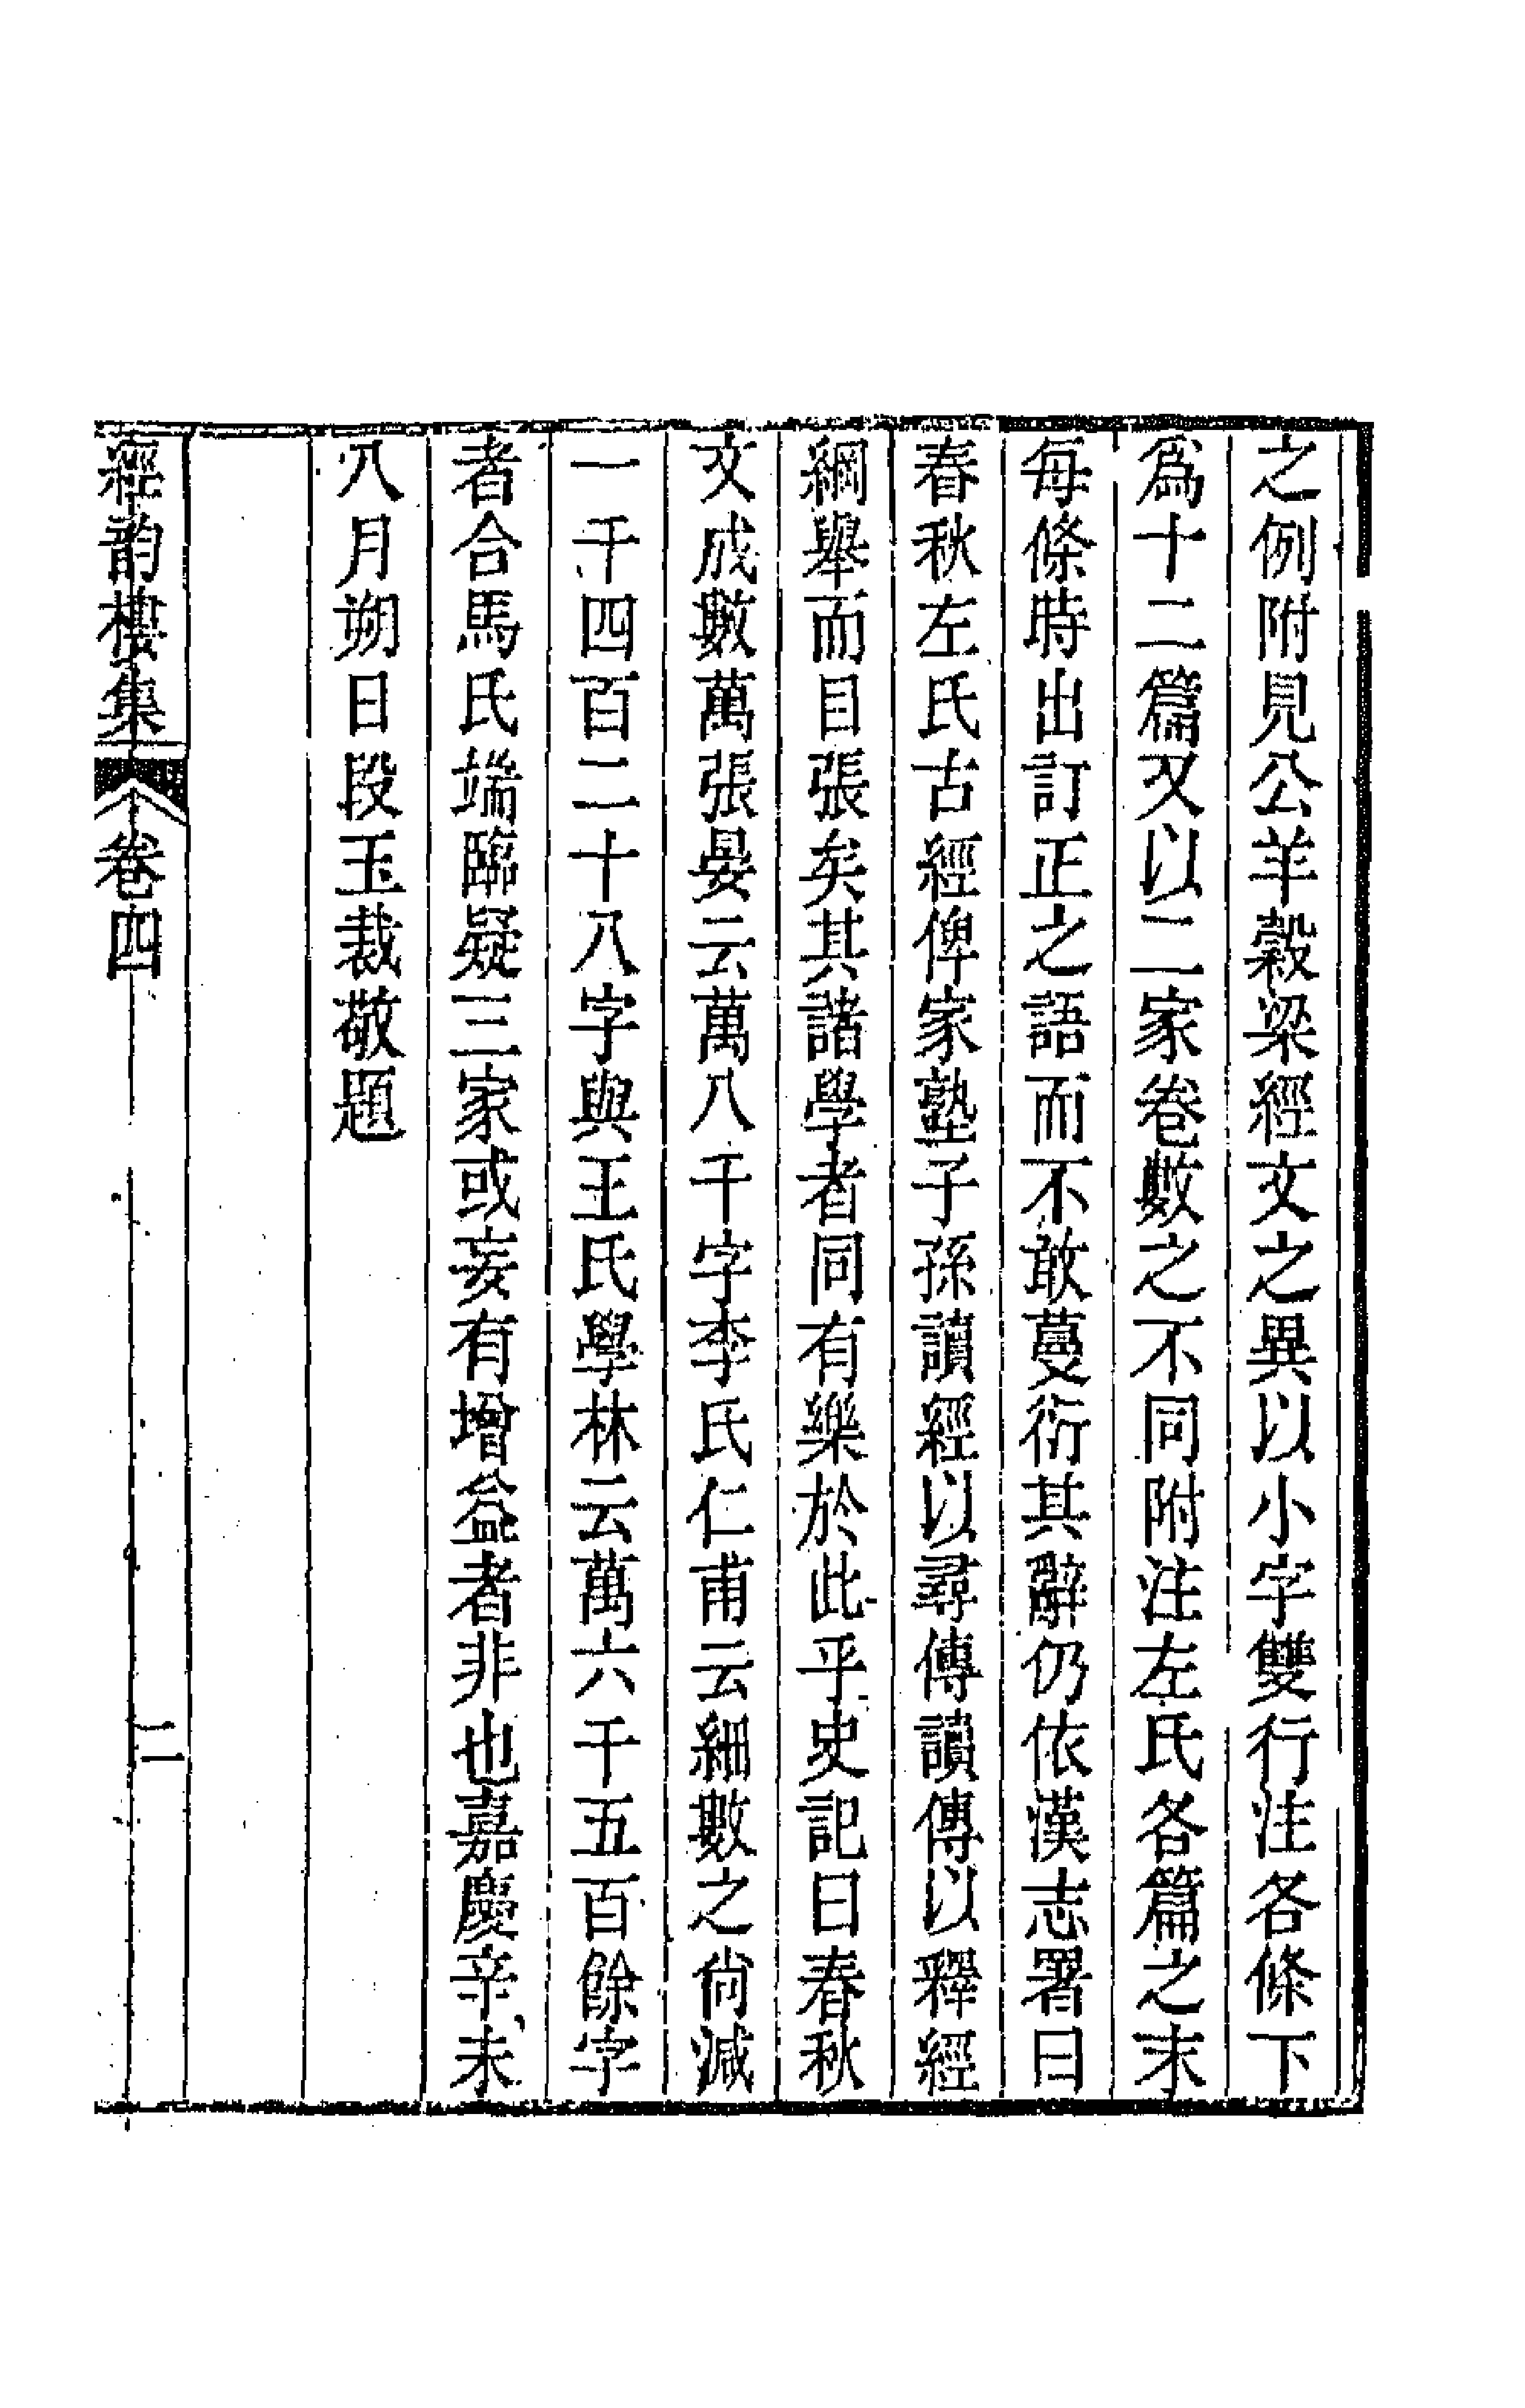 之例附見公羊穀梁經文之異以小字雙行注各條下
爲十二篇又以二家卷數之不同附注左氏各篇之末
每條時出訂正之語而不敢蔓衍其辭仍依漢志署曰
春秋左氏古經俾家塾子孫讀經以尋傳讀傳以釋經
綱舉而目張矣其諸學者同有樂於此乎史記曰春秋
文成數萬張晏云萬八千字李氏仁甫云細數之尙減
一千四百二十八字與王氏學林云萬六千五百餘字
者合馬氏端臨疑三家或妄有增益者非也嘉慶辛未
八月朔日段玉裁敬題
經韵樓集 卷四 二